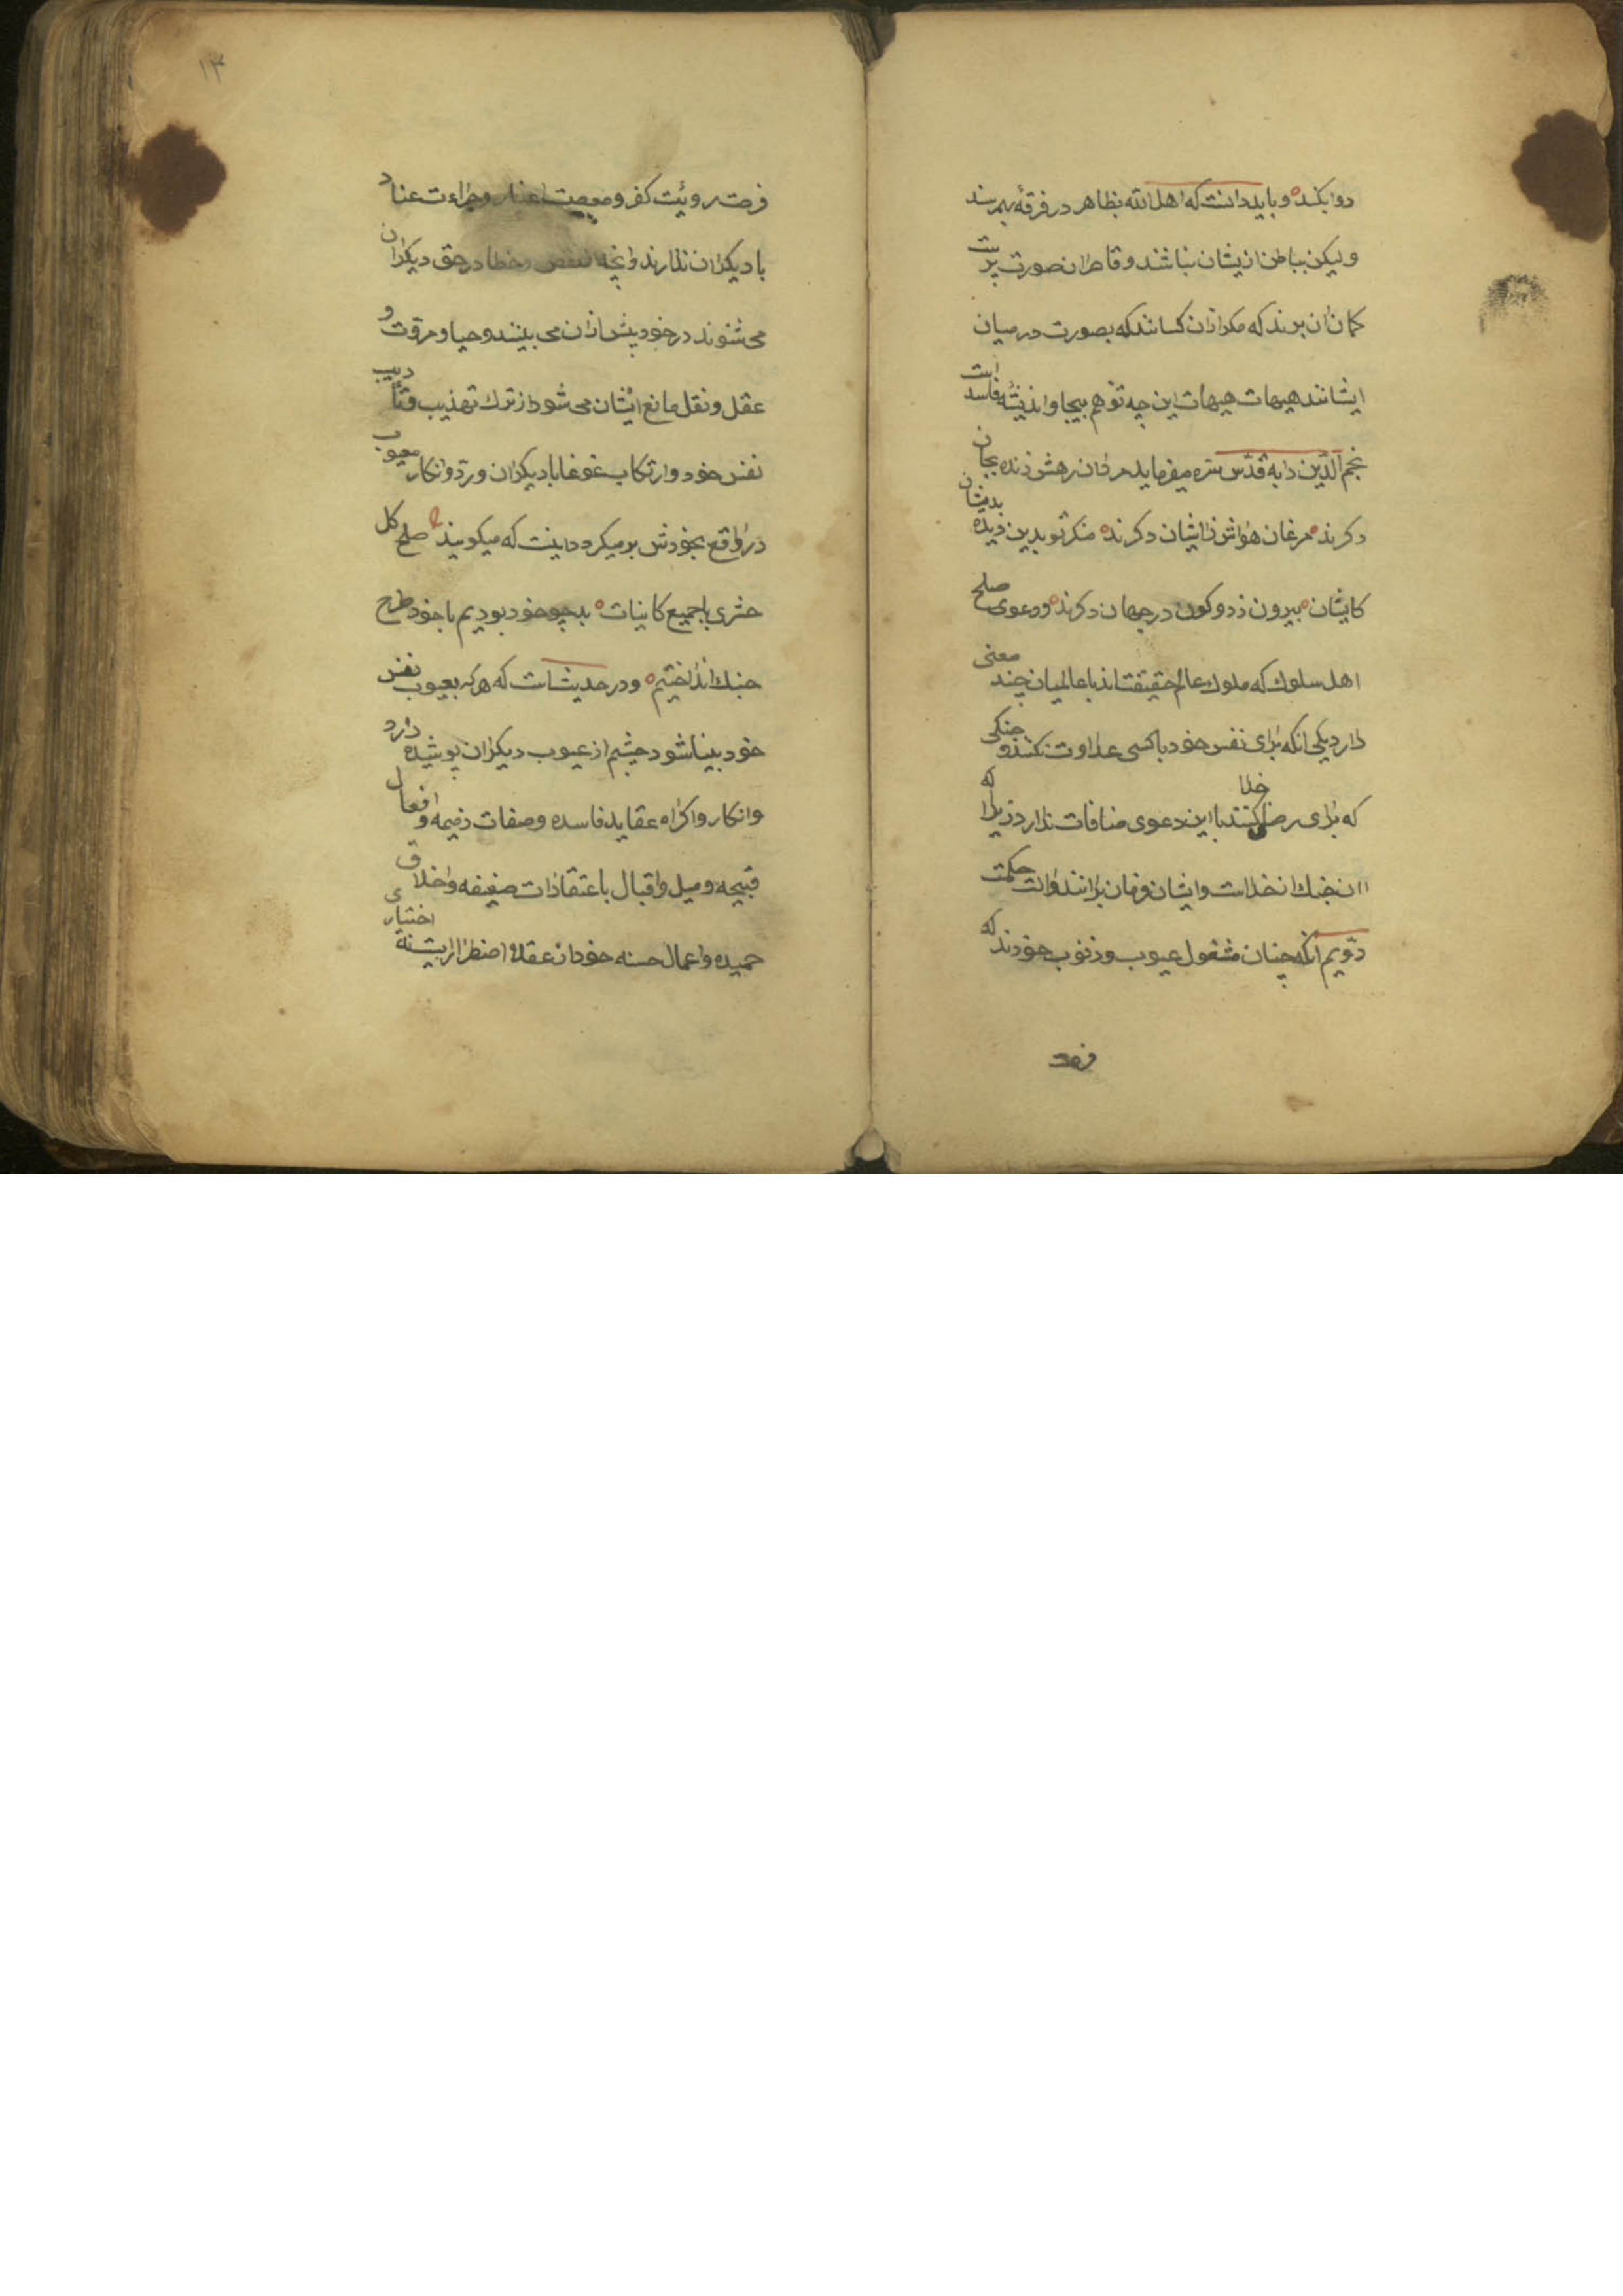 دوا بکند و باید دانست که اهل الله بظاهر در فرقهٔ بهم رسند
ولیکن بباطن ازیشان نباشند و قاصران صورت پرست
کمان ان برند که مکر ازان کسانند که بصورت در میان
ایشانند هیهات هیهات این چه توهم بیجا و اندیشهٔ فاسد است
نجم الدّین دایه قدّس سره میفرماید مردان رهش زنده بجان
دکرند مرغان هواش زاشیان دکرند منکر تو بدین دیده بدیشان
کایشان بیرون ز دو کون در جهان دکرند و دعوی صلح
اهل سلوک که ملوک عالم حقیقت اند با عالمیان چند معنی
دارد یکی انکه برای نفس خود با کسی عداوت نکنند و جنکی
که برای رضا خدا کنند با این دعوی منافات ندارد زیرا که
ان جنک از خداست و ایشان فرمان برانند و الت حکمت
دویم انکه چنان مشغول عیوب و ذنوب خودند که
فرصت
۱۳
فرصت رویٔت کفر و معصیت اغیار و جراءت عناد
با دیکران ندارند و انچه از نقص و خطا در حق دیکران
می شنوند در خود پیش ازان می بینند و حیا و مروّت و
عقل و نقل مانع ایشان می شود از ترک تهذیب و تأدیب
نفس خود و ارتکاب غوغا با دیکران و ردّ و انکار معیوب
در واقع بخودش بر میکردد اینست که میکویند صلح کل
حشری با جمیع کاینات بد چو خود بودیم با خود طرح
جنک انداختیم و در حدیث است که هر که بعیوب نفس
خود بینا شود چشم از عیوب دیکران پوشیده دارد
و انکار و اکراه عقاید فاسده و صفات ذمیمه و افعال
قبیحه و میل و اقبال با عتقادات ضعیفه و اخلاق
حمیده و اعمال حسنه خود از عقلا اضطراریست نه اختیاری